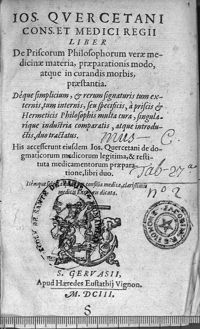 IOS. QVERCETANI
CONS. ET MEDICI REGII
LIBER
De Priscorum Philosophorum veræ medi-
cinæ materia, præparationis modo,
atque in curandis morbis,
præstantia.
Déque simplicium, & rerum signaturis tum ex-
ternis, tum internis, seu specificis, à priscis &
Hermeticis Philosophis multa cura, singula-
rique industria comparatis, atque introdu-
ctis, duo tractatus.
His accesserunt eiusdem Ios. Quercetani de do-
gmaticorum medicorum legitima, & resti-
tuta medicamentorum præpara-
tione, libri duo.
Tab-27ª
nº 2
S. GERVASII,
Apud Hæredes Eustathij Vignon.
M. DCIII.
S